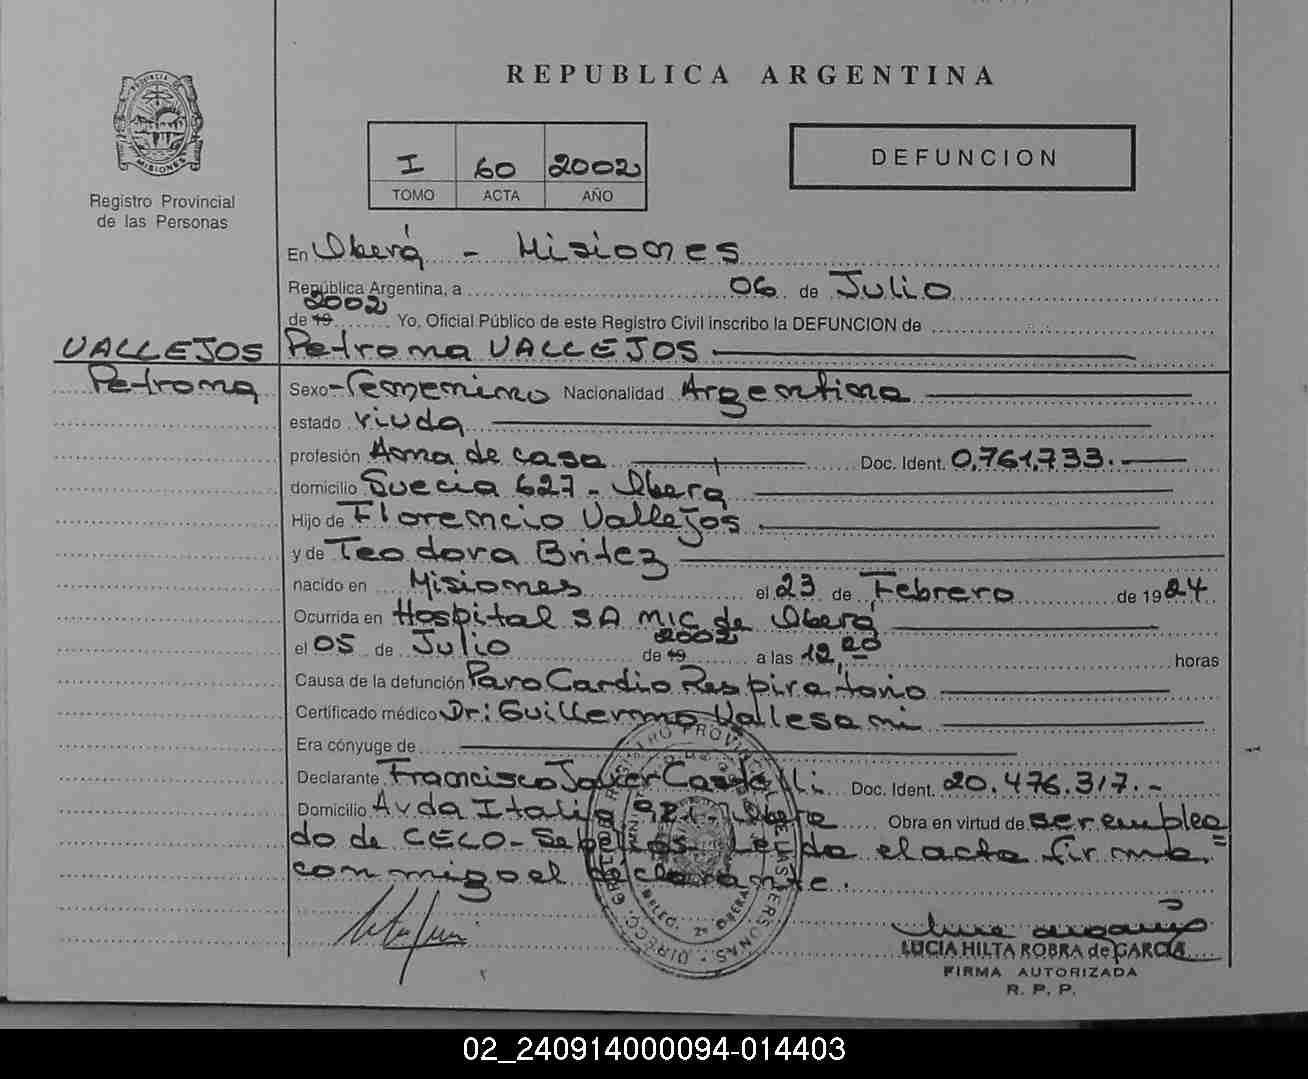 REPUBLICA ARGENTINA
PROVINCIA DE
MISIONES
Registro Provincial
de las Personas
I 60 2002
TOMO ACTA AÑO
DEFUNCION
En Oberá - Misiones
República Argentina, a 06 de Julio
2002
de 19 Yo, Oficial Público de este Registro Civil inscribo la DEFUNCION de
VALLEJOS Petrona VALLEJOS
Petrona
Sexo Femenino Nacionalidad Argentina
estado viuda
profesión Ama de casa Doc. Ident. 0,761,733.-
domicilio Suecia 627 - Oberá
Hijo de Florencio Vallejos
y de Teodora Britez
nacido en Misiones el 23 de Febrero de 1924
Ocurrida en Hospital SAMIC de Oberá
2002
el 05 de Julio de 19 a las 12,20 horas
Causa de la defunción Paro Cardio Respiratorio
Certificado médico Dr: Guillermo Vallesani
Era cónyuge de
Declarante Francisco Javier Doc. Ident. 20.476.317.-
Domicilio Avda Italia 921 - Oberá Obra en virtud de ser emplea=
do de CECO- Sepelios. Leida el acta firma
conmigo el declarante.
LUCIA HILTA ROBRA de GARCIA
FIRMA AUTORIZADA
R. P. P.
02_240914000094-014403